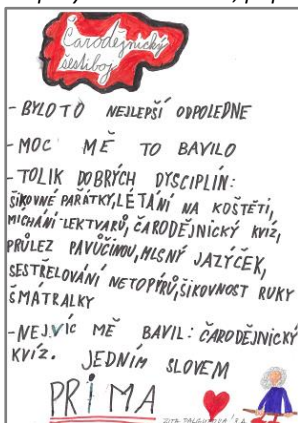 Čarodějnický
šestiboj
- BYLO TO NEJLEPŠÍ ODPOLEDNE
- MOC MĚ TO BAVILO
- TOLIK DOBRÝCH DYSCIPLÍN:
ŠIKOVNÉ PAŘÁTKY, LÉTÁNÍ NA KOŠTĚTI,
MÍCHÁNÍ LEKTVARŮ, ČARODĚJNICKÝ KVÍZ,
PRŮLEZ PAVUČINOU, MLSNÝ JAZÝČEK,
SESTŘELOVÁNÍ NETOPÝRŮ, ŠIKOVNOST RUKY
ŠMÁTRALKY
- NEJVÍC MĚ BAVIL: ČARODĚJNICKÝ
KVÍZ. JEDNÍM SLOVEM
PRIMA
ZITA